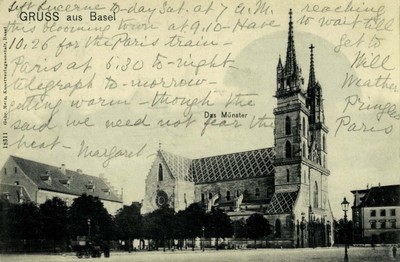 Left Lucerne to-day Sat. at 7 A.M. reaching
GRUSS aus Basel
this blooming town at 9.10 - Have to wait till
10.26 for the Paris train -
Paris at 5.30 to-night
telegraph to-morrow -
warm - though the
said we need not fear the
heat - Margaret
Get to
Will
Weather
Paris
Das Münster
18311